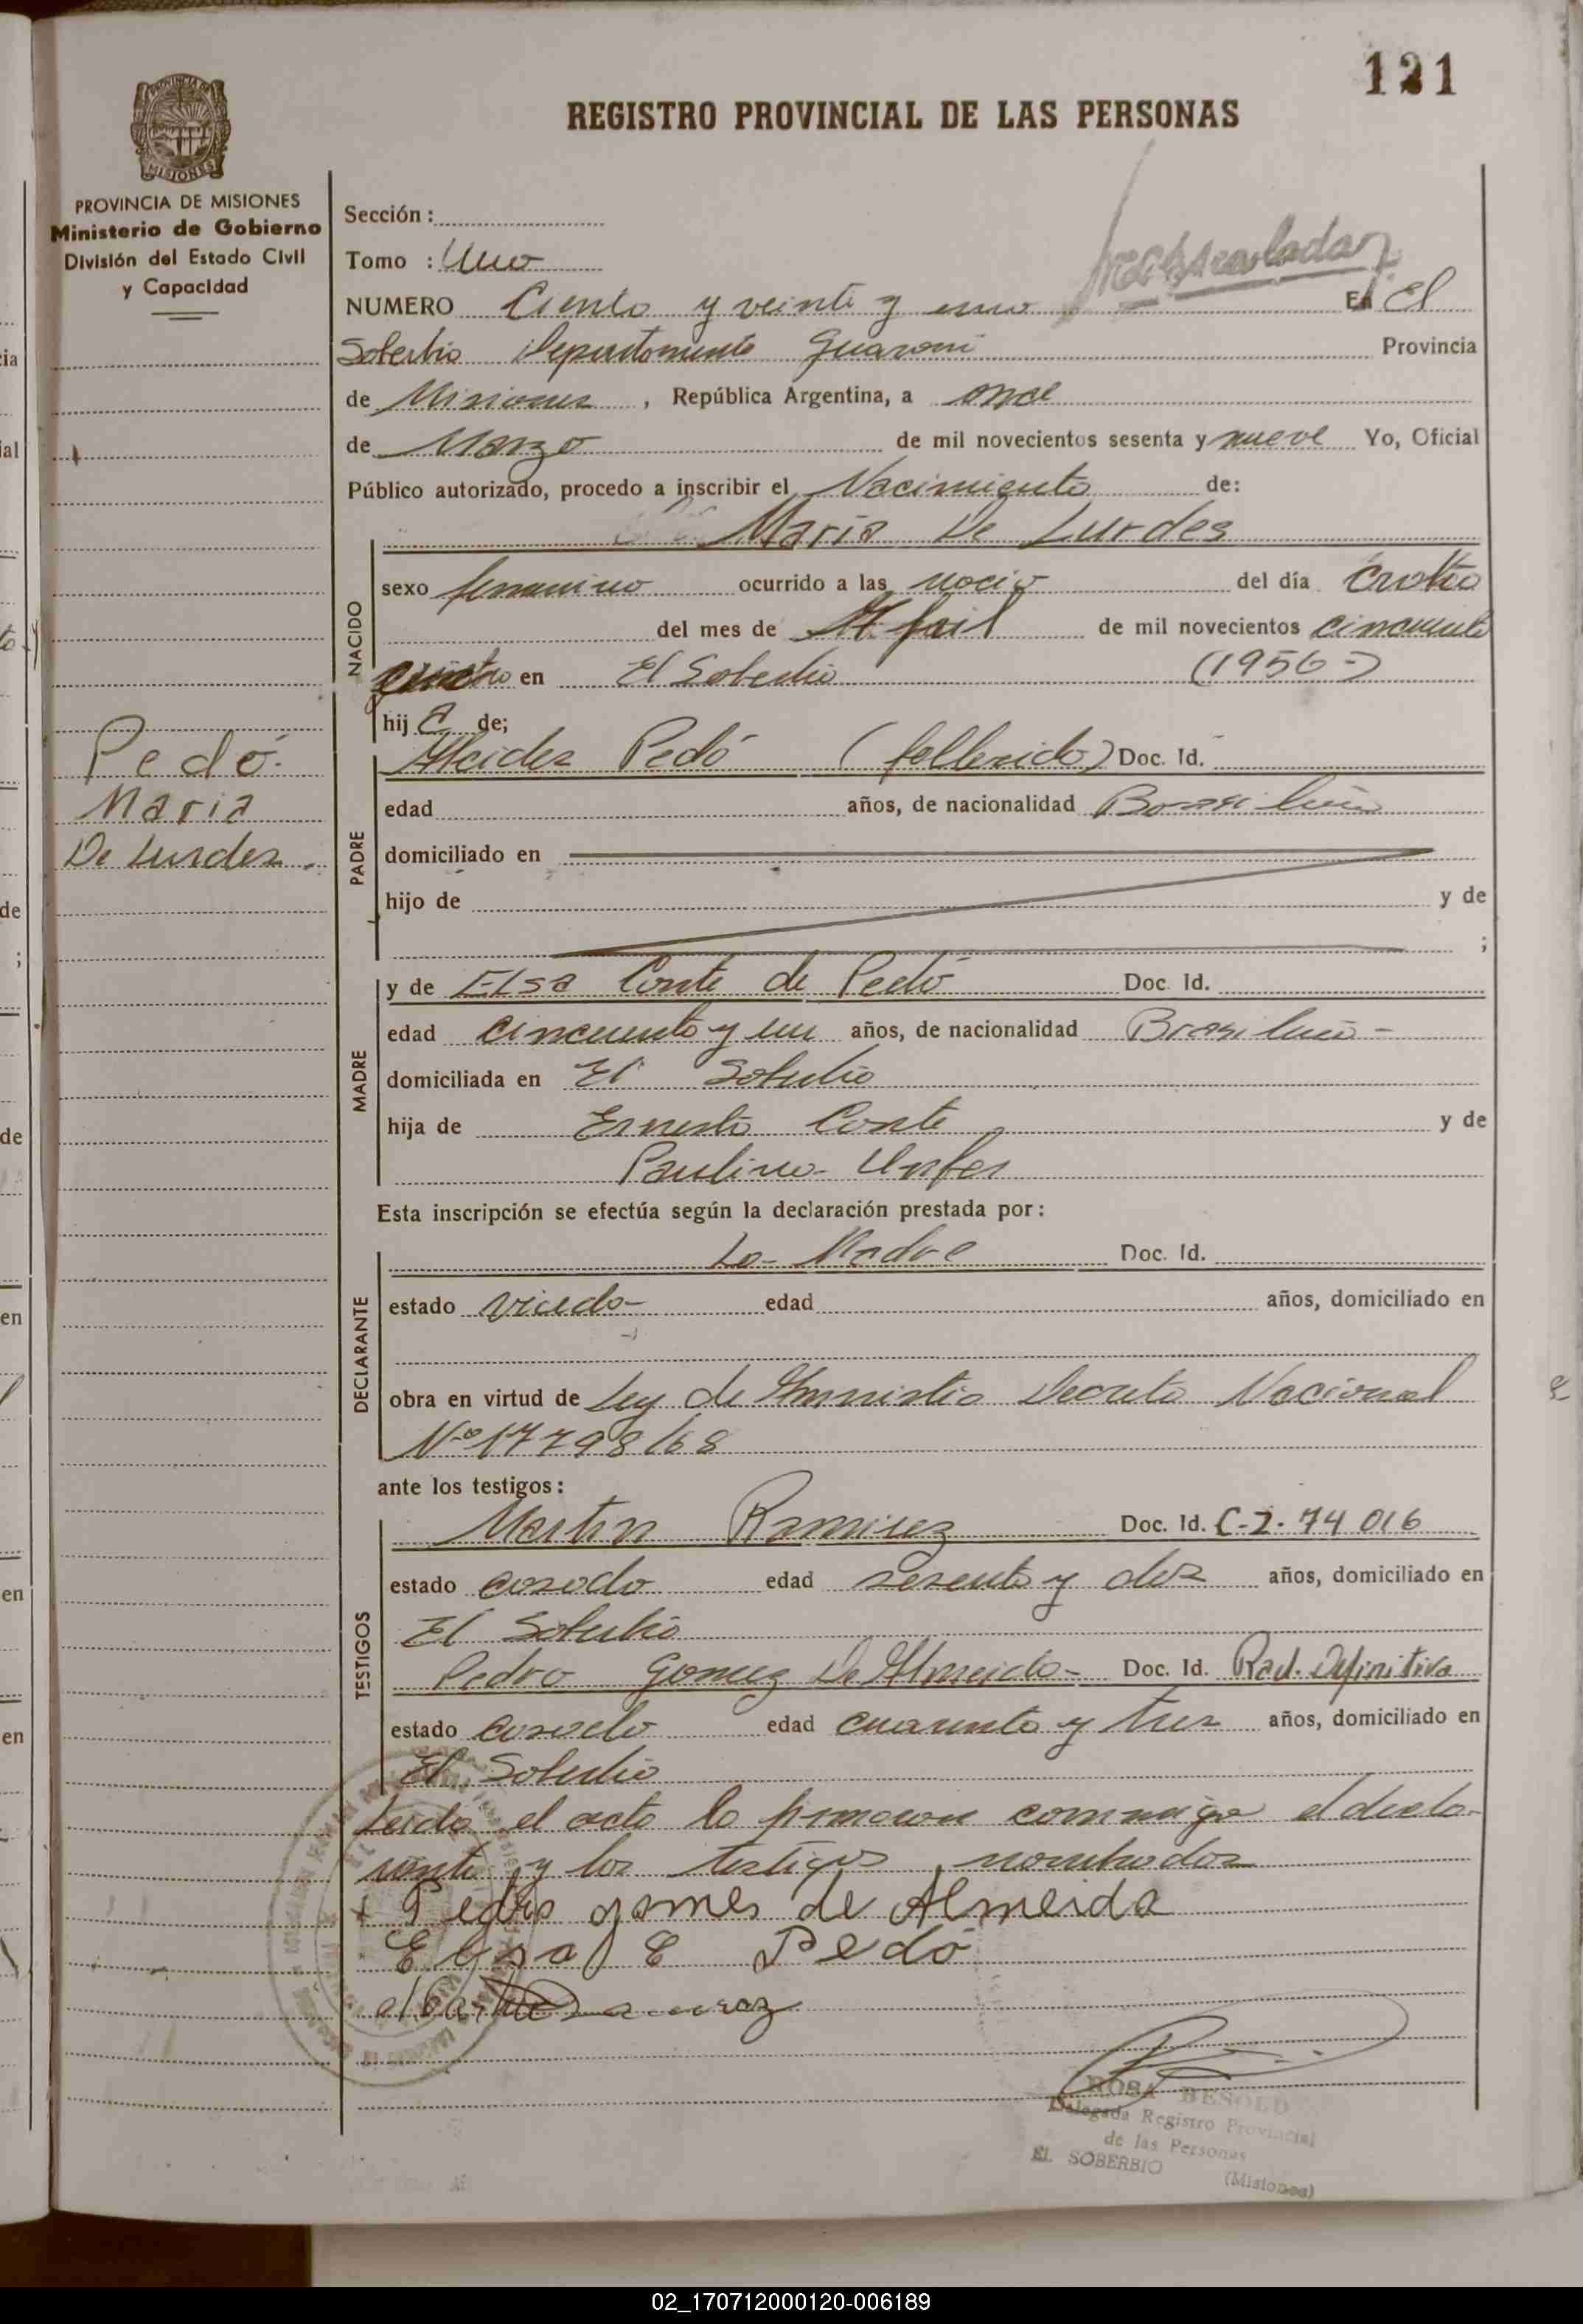 121
REGISTRO PROVINCIAL DE LAS PERSONAS
PROVINCIA DE MISIONES
Ministerio de Gobierno
División del Estado Civil
y Capacidad
Sección :
Tomo : Uno
NUMERO Ciento y veinti y uno En El
Soberbio Departamento Guarani Provincia
de Misiones , República Argentina, a once
de Marzo de mil novecientos sesenta y nueve Yo, Oficial
Público autorizado, procedo a inscribir el Nacimiento de:
Maria De Lurdes
NACIDO
sexo femenino ocurrido a las del día
del mes de Abril de mil novecientos cincuenta
en El Soberbio (1956-)
hij a de;
Pedó
Maria
De Lurdes.
PADRE
Alcides Pedó (fallecido) Doc. Id.
edad años, de nacionalidad
domiciliado en
hijo de y de
;
MADRE
y de Elsa Conte de Pedó Doc. Id.
edad cincuenta y un años, de nacionalidad Brasileña -
domiciliada en El Soberbio
hija de Ernesto Conte y de
Paulina
Esta inscripción se efectúa según la declaración prestada por:
DECLARANTE
La Madre Doc. Id.
estado viuda edad años, domiciliado en
obra en virtud de Ley de Amnistia Decreto Nacional
Nº 17798/68
ante los testigos:
TESTIGOS
Martin Ramirez Doc. Id. C-2. 74 016
estado casado edad sesenta y dos años, domiciliado en
El Soberbio
Pedro Gomez De Almeida - Doc. Id. Rad. Definitiva
estado casado edad cuarenta y tres años, domiciliado en
El Soberbio
Leida el acta la firmaron conmigo el decla-
rante y los testigos nombrados
Pedro gomes de Almeida
Elsa C Pedó
ROSA BESOLD
Delegada Registro Provincial
de las Personas
EL SOBERBIO (Misiones)
02_170712000120-006189